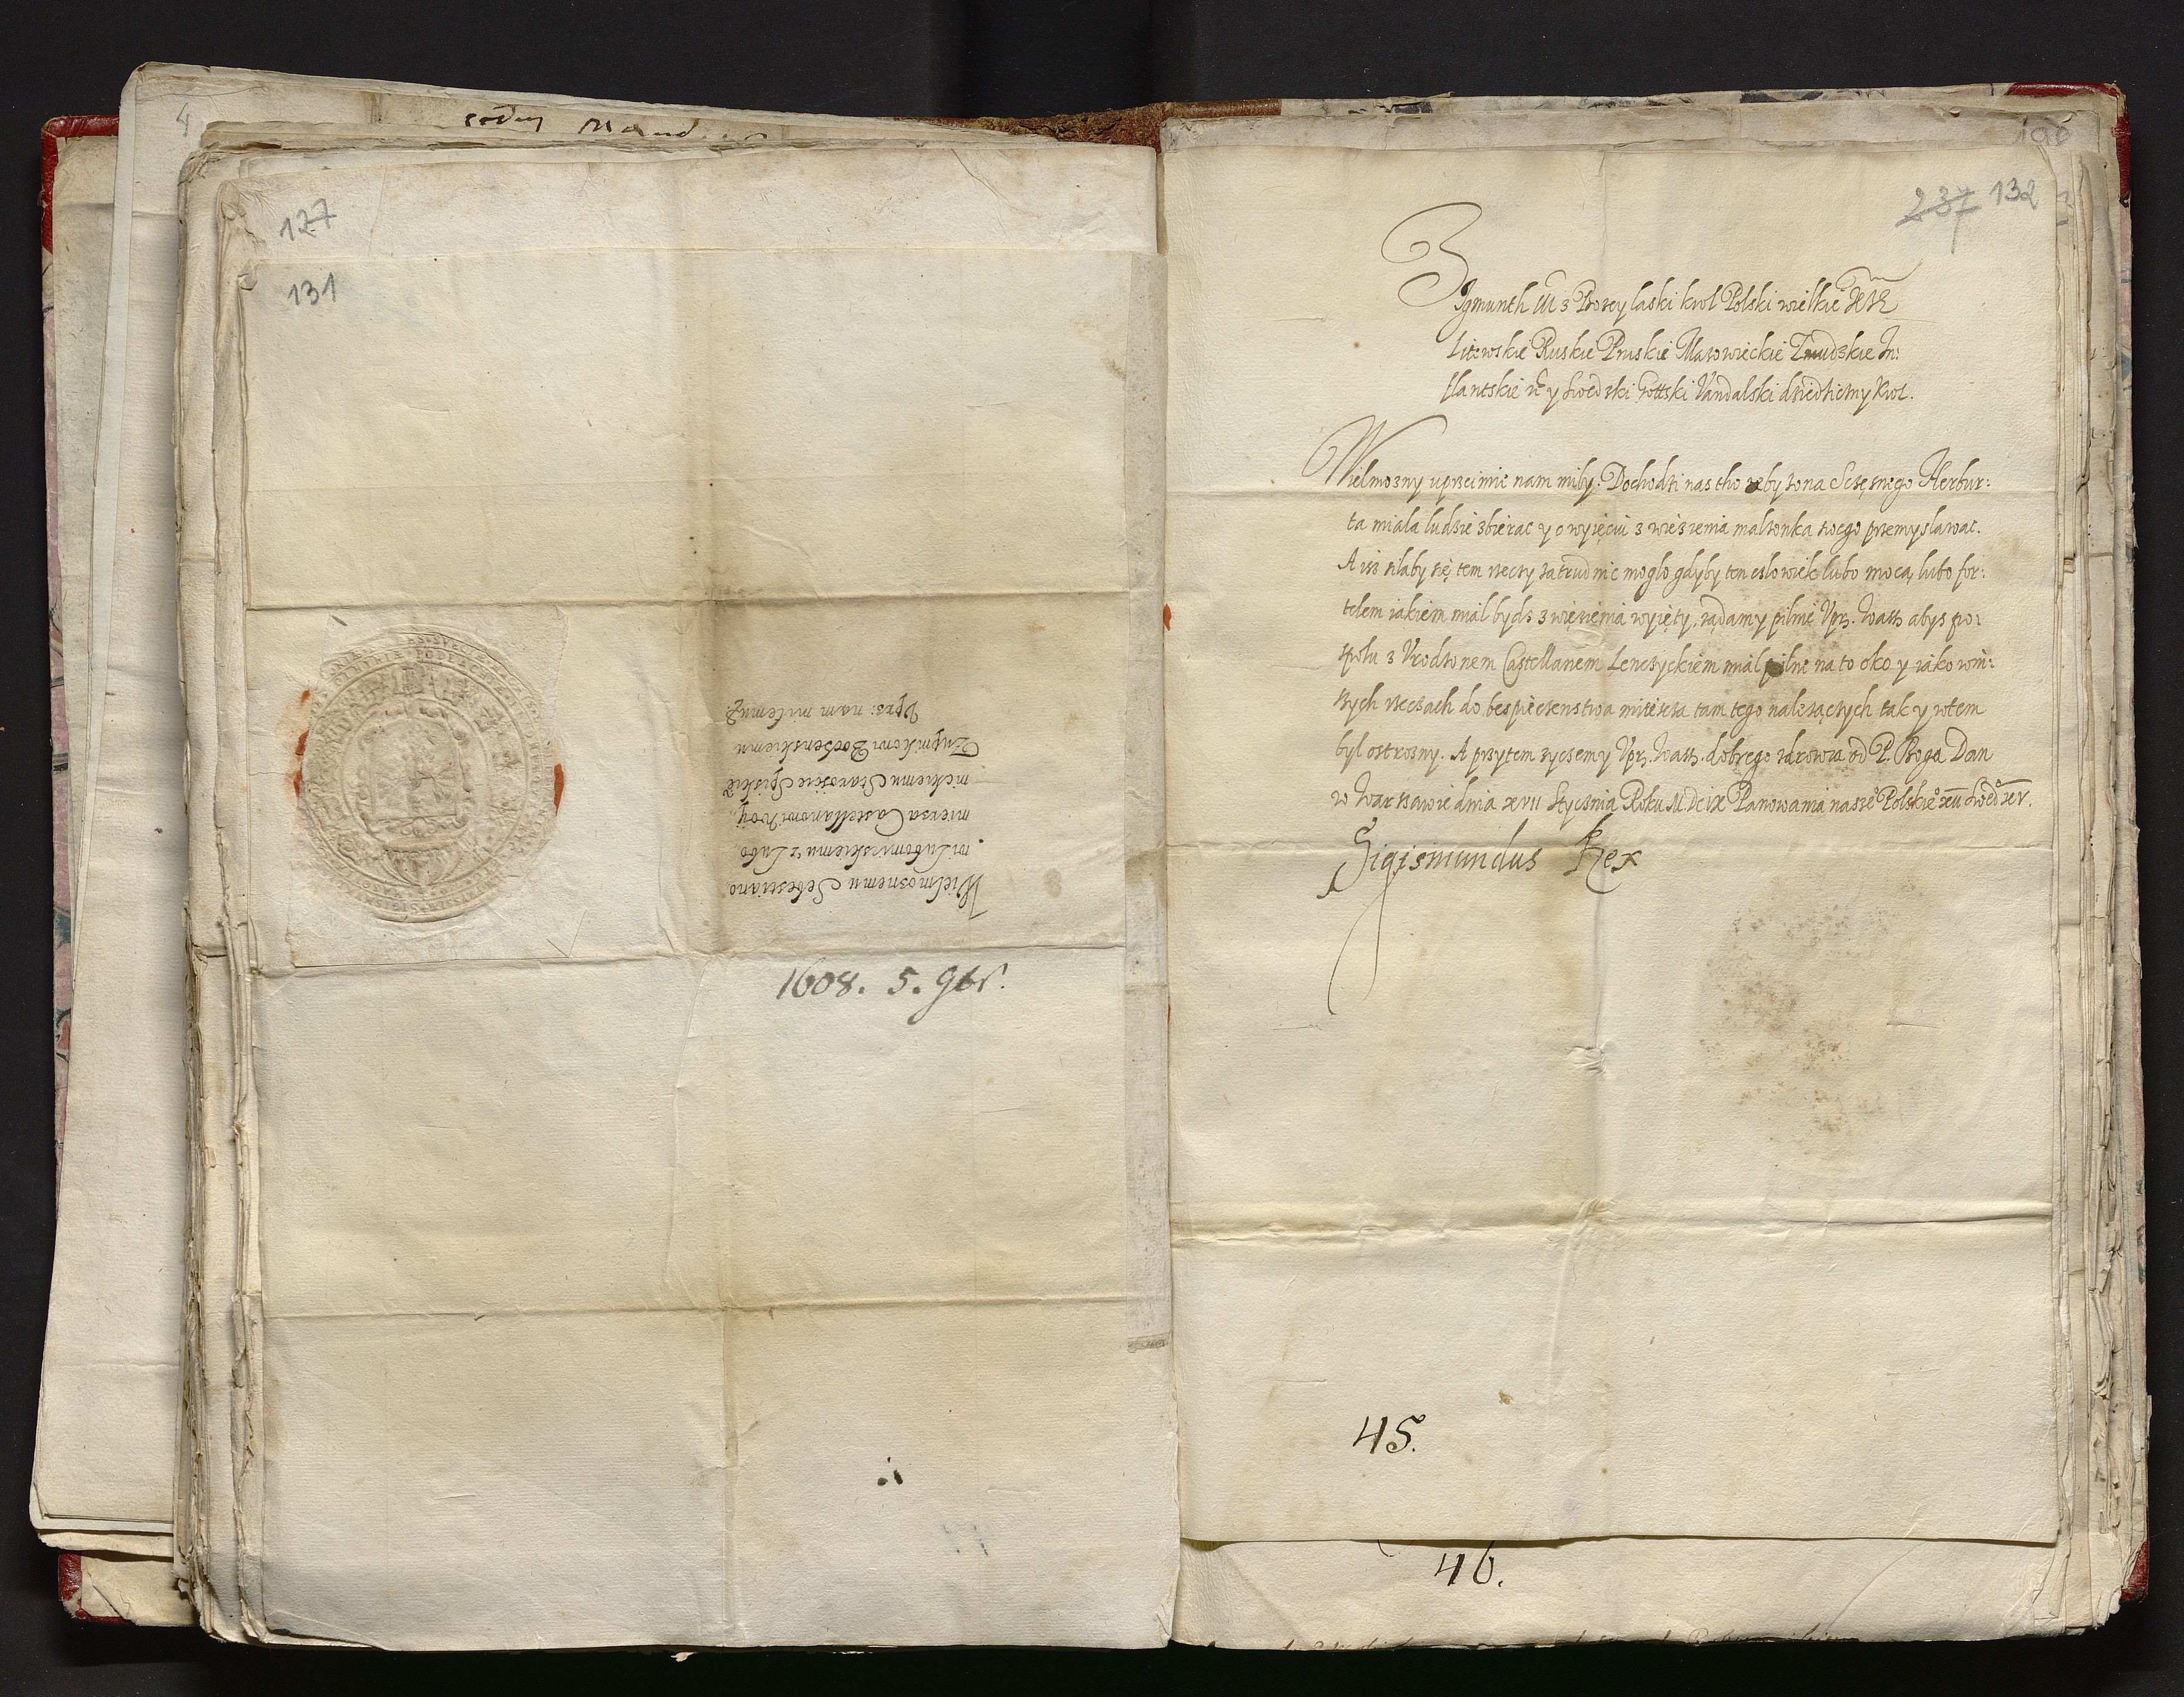 4
127
131
Wielmoznemu Sebestiano
wi Lubomirskiemu z Lubo
mierza Castellanowi Woÿ
nickiemu Staroście Spiskie
Zupnikowi Bochenskiemu
Uprz: nam milemu
1608. 5. 9br.
106
237 132
Zygmunth III z Bozey laski krol Polski wielkie
Litewskie Ruskie Pruskie Mazowieckie Zmudzkie In:
flantskie y Swedzki Gottski Vandalski dziedziczny Krol.
Wielmozny uprzeimie nam mily. Dochodzi nas tho zeby zona Sczęsnego Herbur:
ta miala ludzie zbierac y o wyięciu z wiezienia malzonka swego przemyslawac.
A isz silaby się tem rzeczy zatrudnic moglo gdyby ten czlowiek lubo mocą lubo for:
telem iakiem mial bydz z więzienia wyięty, ządamy pilnie Uprz. Wasz abys po:
spolu z Urodzonem Castellanem Lenczyckiem mial pilne na to oko y iako win:
szych rzeczach do bespieczenstwa mieisca tam tego nalezączych tak y wtem
byl ostrozny. A przytem zyczemy Uprz. Wasz. dobrego zdrowia od P. Boga Dan
w Warszawie dnia XVII Stycznia Roku M.DCIX Panowania nasze Polskie XXII Swed XV.
Sigismundus Rex
45.
46.